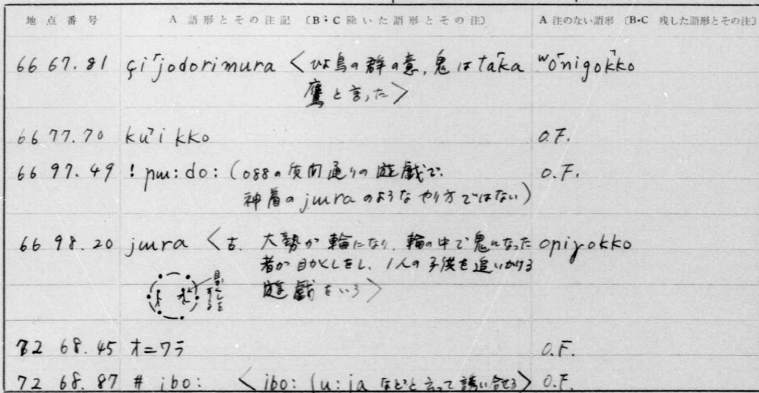 地点番号 A 語形とその注記 〔B・C 除いた語形とその注〕 A 注のない語形 〔B・C 残した語形とその注〕
66 67.81 çi⌈jodorimura <ひよ鳥の群の意,鬼はta⌈ka wo⌈nigo⌉kko
鷹と言った>
66 77.70 ku⌉ikko O.F.
66 97.49 ! pɯ:do: (088の質問通りの遊戯で. O.F.
神着のjɯraのようなやり方ではない)
66 98.20 jɯra <古. 大勢が輪になり、輪の中で鬼になった opiɣokko
者が目かくしをし、1人の子供を追いかける
遊戯をいう>
目かくしをする
72 68.45 オニワラ O.F.
72 68.87 # ibo: <ibo:(u:ja などと云って誘い合せる> O.F.